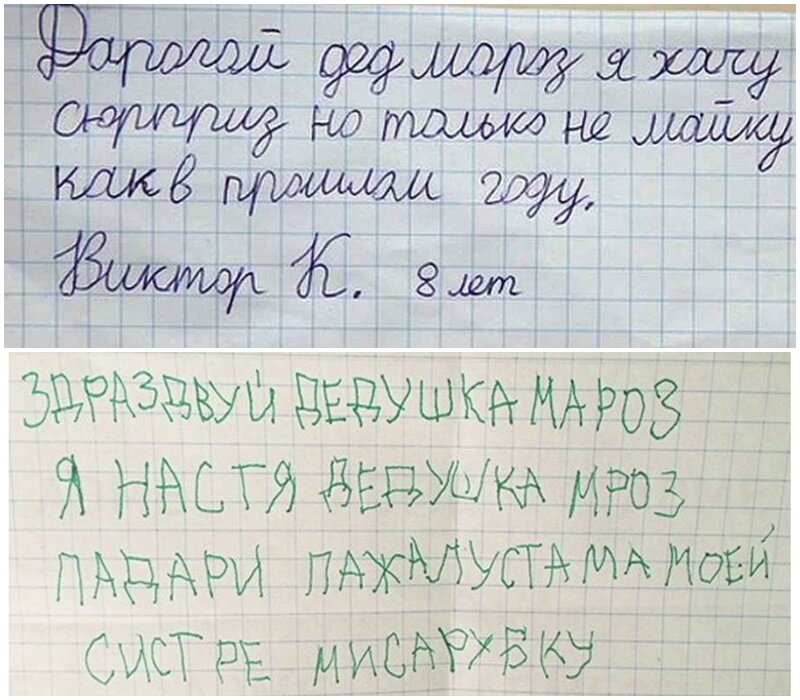 Дарогой дед мароз я хачу
сюрприз но только не майку
как в прошлам году.
Виктор К. 8 лет
ЗДРАЗДВУЙ ДЕДУШКА МАРОЗ
Я НАСТЯ ДЕДУШКА МРОЗ
ПАДАРИ ПАЖАЛУСТА МА МОЕЙ
СИСТРЕ МИСАРУБКУ